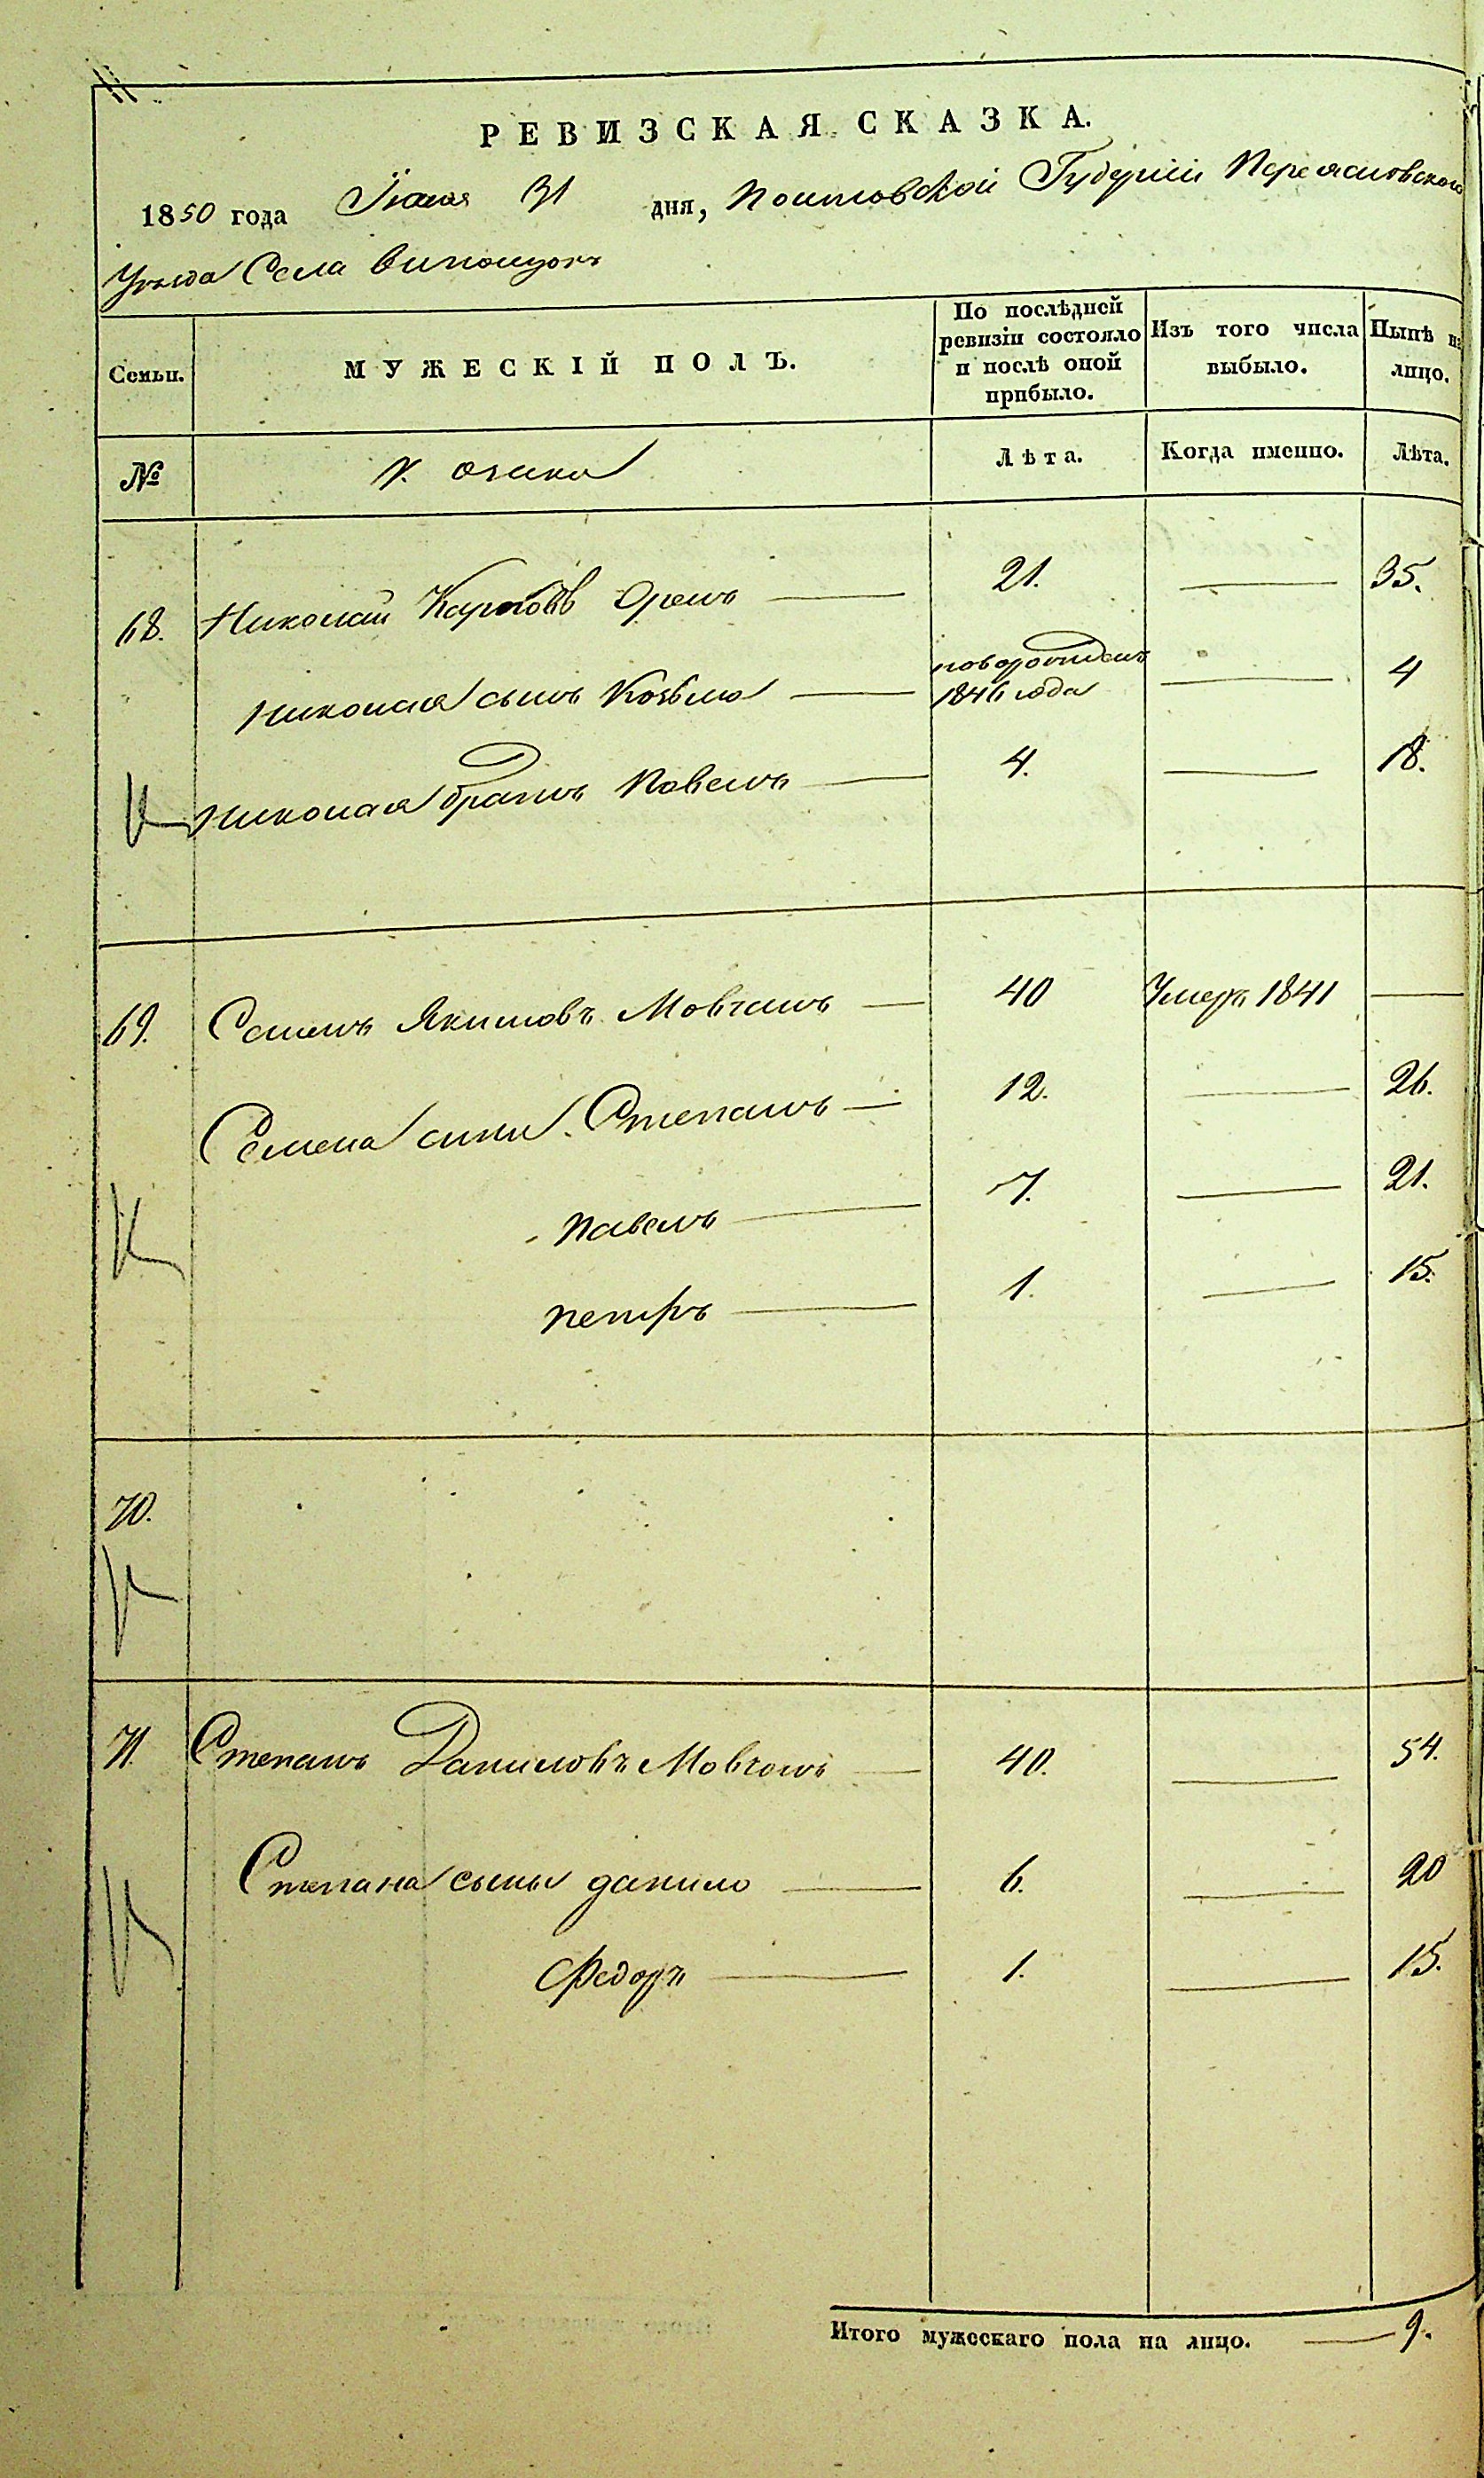 РЕВИЗСКАЯ СКАЗКА.
1850 года Июля 31 дня, Полтовской Губерніи Переясловского
Уѣзда Села
Семьи.
МУЖЕСКІЙ ПОЛЪ.
По послѣдней ревизіи состояло и послѣ оной прибыло.
Изъ того числа выбыло.
Нынѣ на лицо.
№
Лѣта.
Когда именно.
Лѣта.
68. Николай Карповъ Орелъ 21. 35.
Николая сынъ Козьма новорожденъ 1846 года 4
Николая братъ Павелъ 4. 18.
69. Семенъ Якимовъ Мовчанъ 40 Умеръ 1841
Семена сини Степанъ 12. 26.
Павелъ 7. 21.
петръ 1. 15.
70.
71. Степанъ Даниловъ Мовчанъ 40. 54.
Степана сыны данило 6. 20
Федоръ 1. 15.
Итого мужескаго пола на лицо. 9.